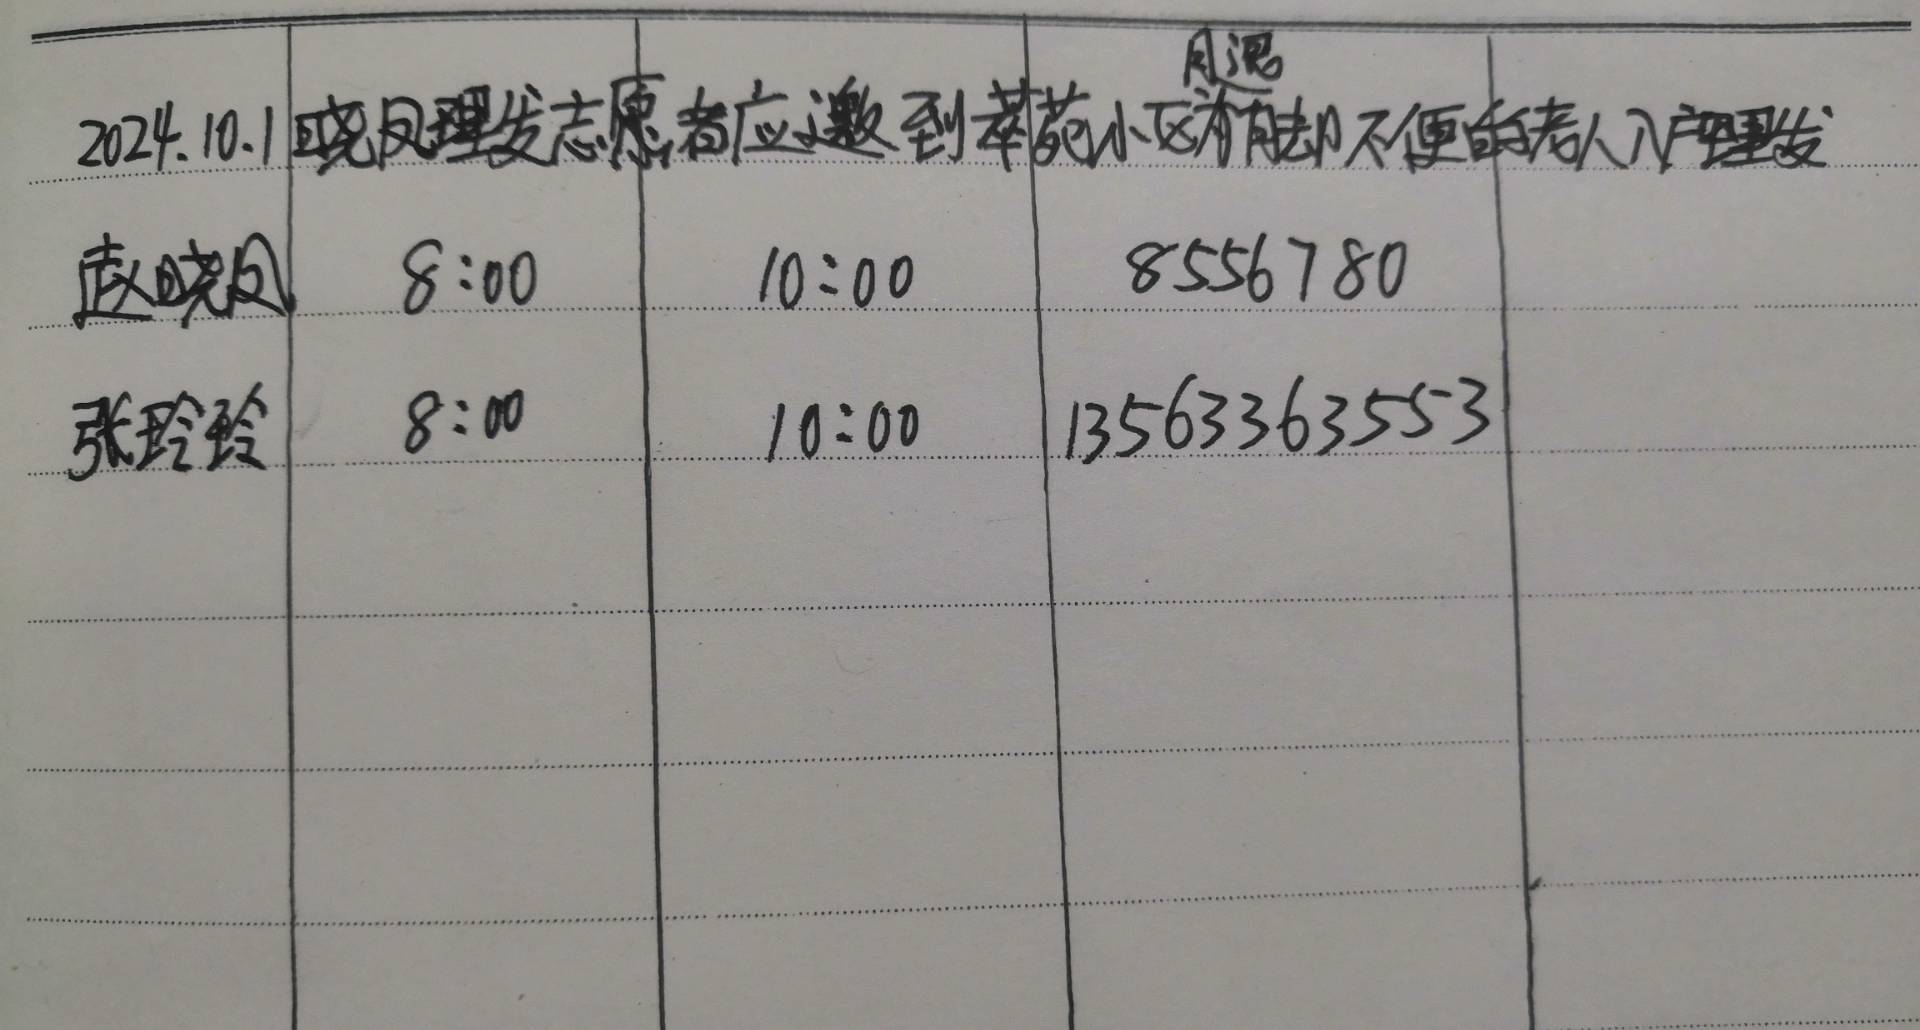 2024.10.1 晓凤理发志愿者应邀到萃苑小区为有脚不便的老人入户理发
赵晓凤 8:00 10:00 8556780
张玲玲 8:00 10:00 13563363553